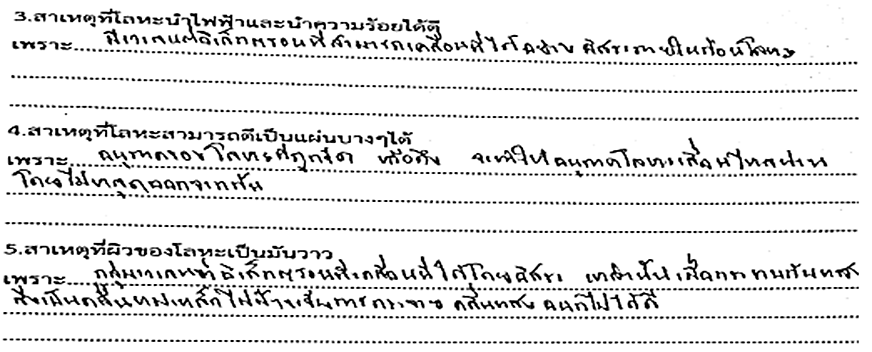 3.สาเหตุที่โลหะนำไฟฟ้าและนำความร้อยได้ดี
เพราะ มีเวเลนซ์อิเล็กตรอนที่สามารถเคลื่อนที่ได้อย่างอิสระภายในก้อนโลหะ
4.สาเหตุที่โลหะสามารถตีเป็นแผ่นบางๆได้
เพราะ อนุภาคของโลหะที่ถูกรีด หรือดึง จะทำให้อนุภาคโลหะเลื่อนไถลผ่าน
โดยไม่หลุดออกจากกัน
5.สาเหตุที่ผิวของโลหะเป็นมันวาว
เพราะ กลุ่มเวเลนซ์อิเล็กตรอนที่เคลื่อนที่ได้โดยอิสระ เหล่านั้นเมื่อกระทบกับแสง
ซึ่งเป็นคลื่นแม่เหล็กไฟฟ้าจะเกิดการกระจาย คลื่นแสง